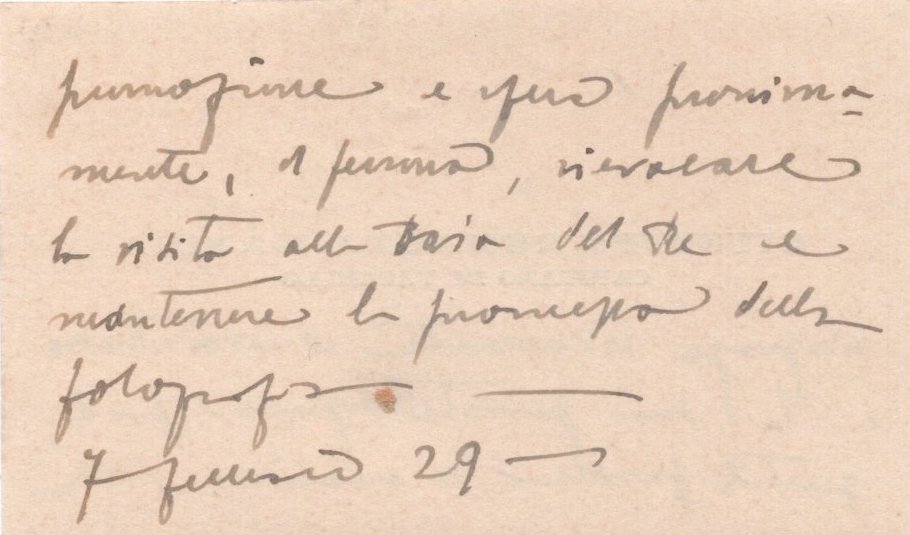 promozione e spero prossima=
mente, di persona, rievocare
la visita alla Baia del Re e
mantenere la promessa della
fotografia —
7 gennaio 29 —